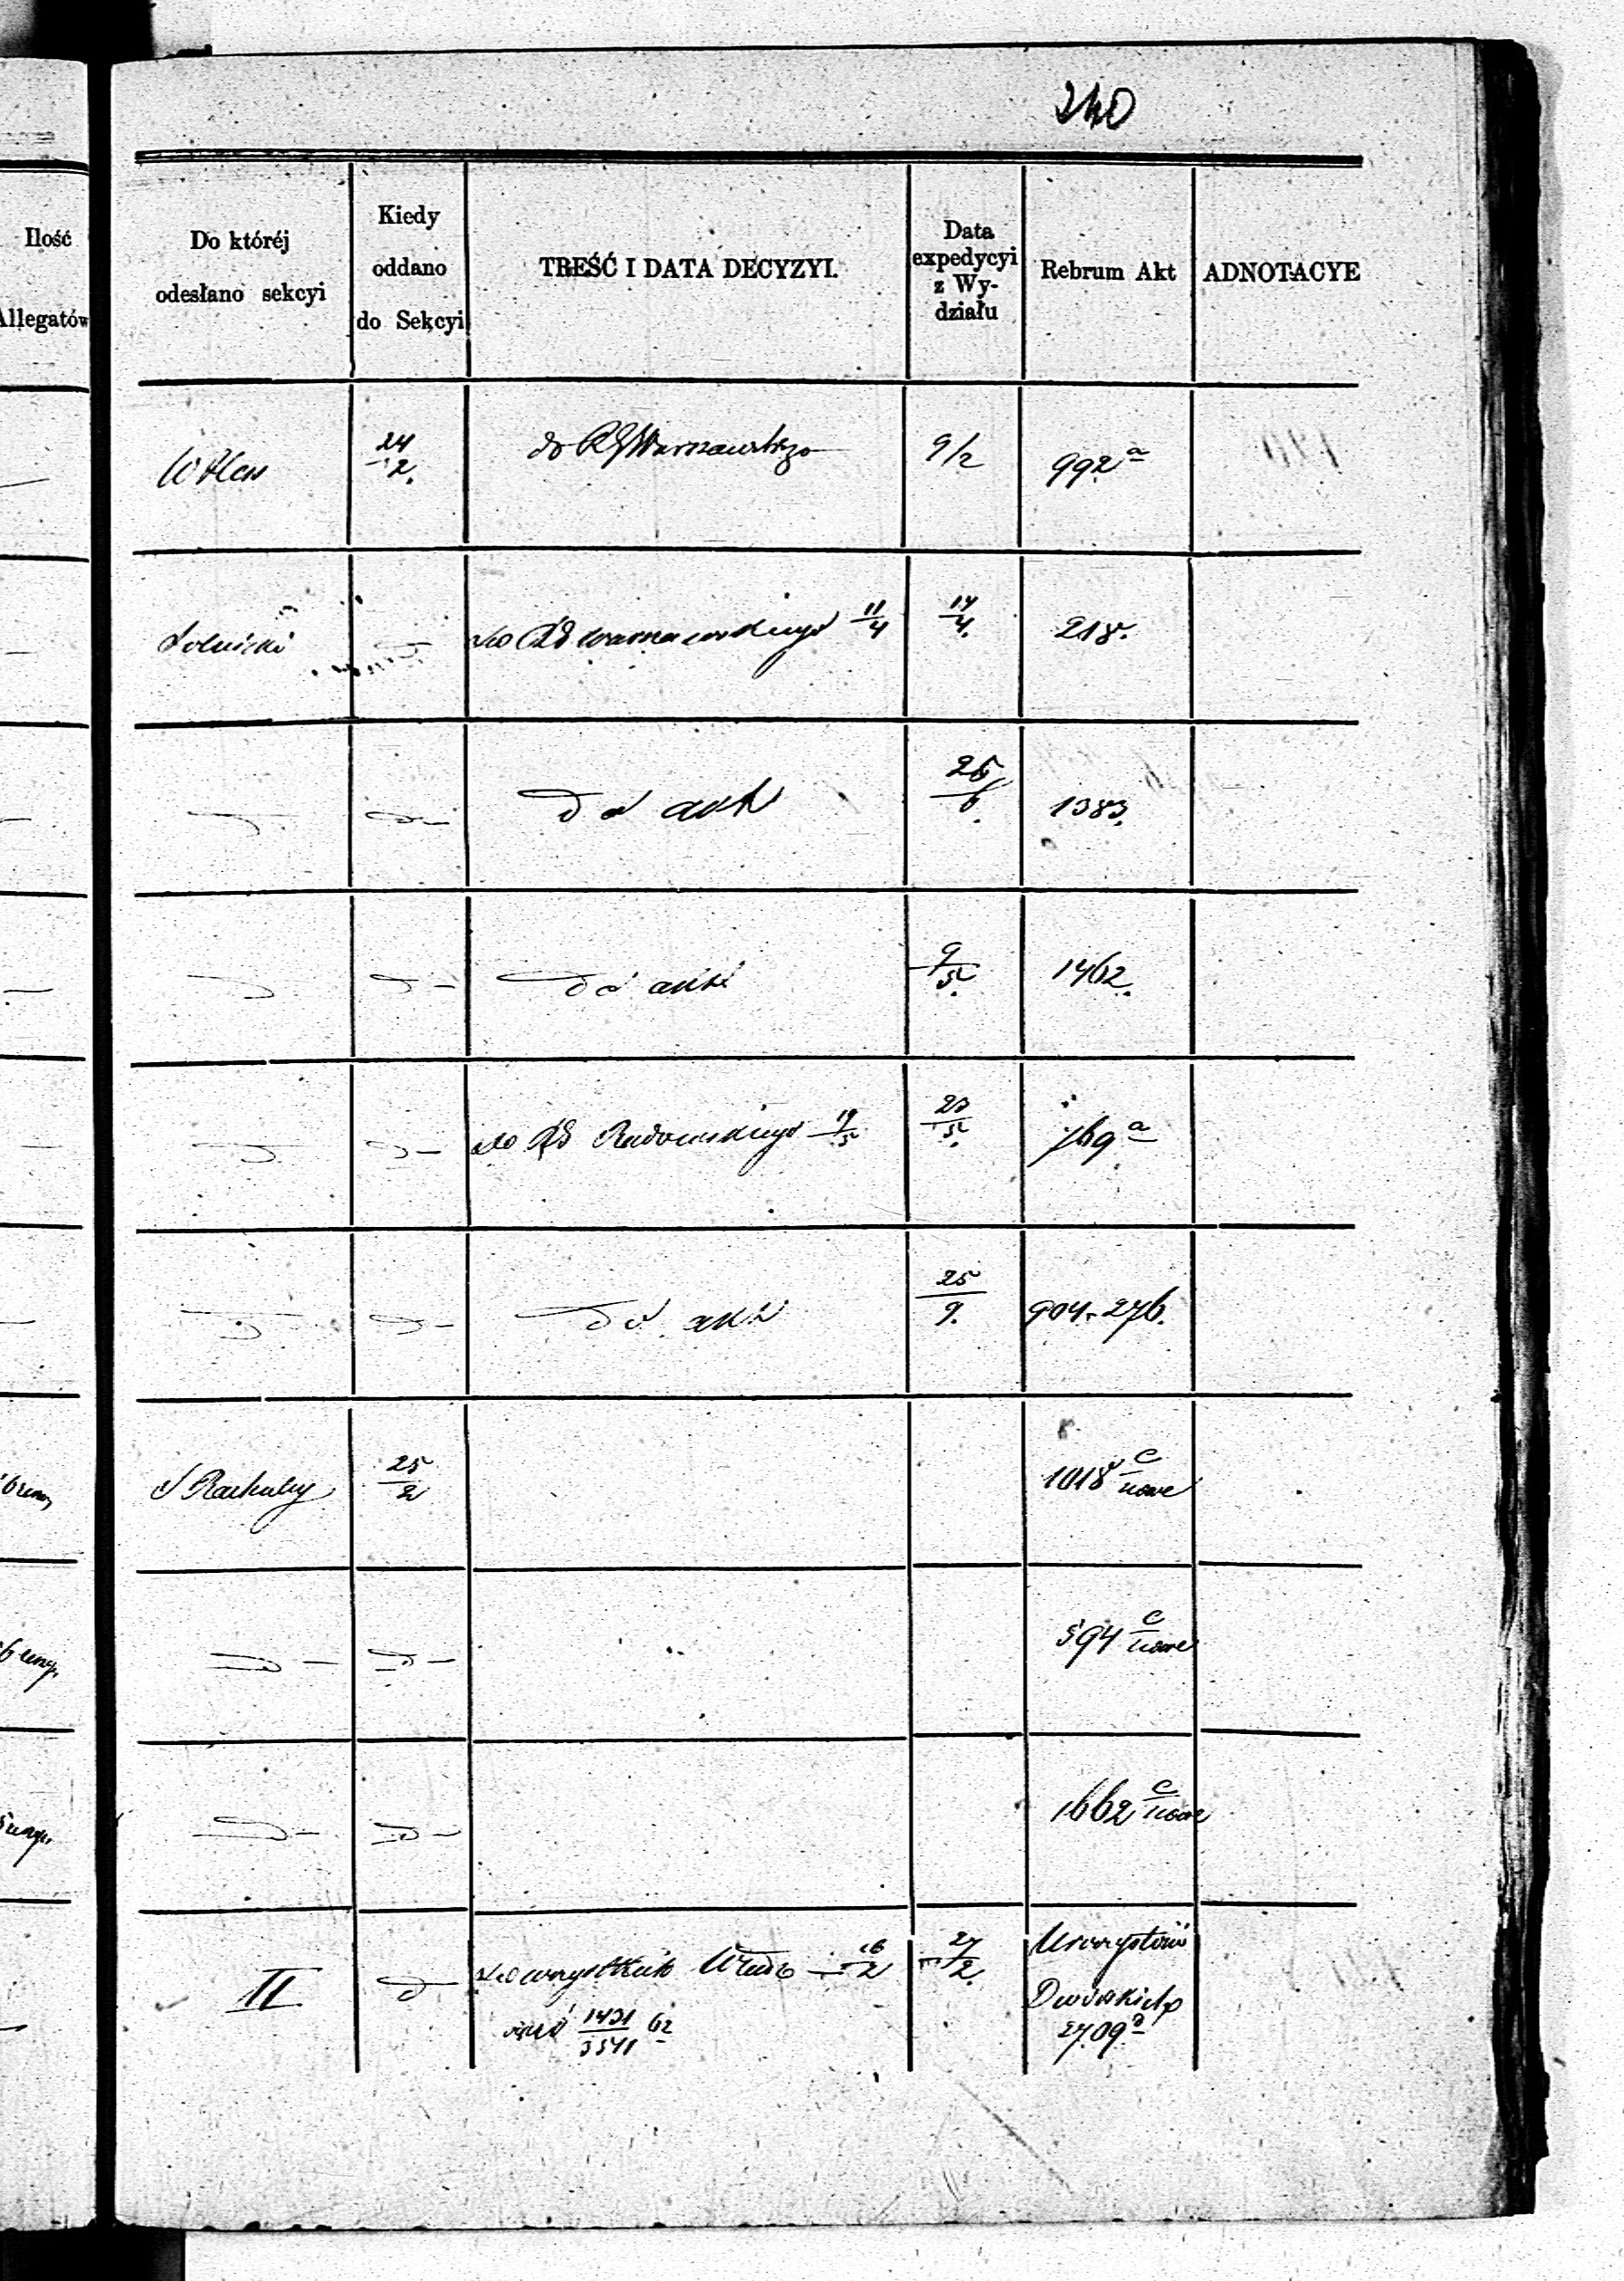 240
Ilość
Allegatów
Do któréj
odesłano sekcyi
Kiedy
oddano
do Sekcyi
TREŚĆ I DATA DECYZYI.
Data
expedycyi
z Wy-
działu
Rebrum Akt
ADNOTACYE
24/2 do RG Warszawskiego 9/2 992 a
do RG Warszawskiego 11/4 14/4 218
do akt 1383
do akt 9/5 1462
do RG Radomskiego 19/5 23/5 769 a
do akt 25/9 904-276
S Rachuby 25/2 1018 c/nowe
594 c/nowe
1662 c/nowe
II do wszystkich Władz 16/2 27/2 Uroczystości
Dworskich
1431/3541 62 2709 a